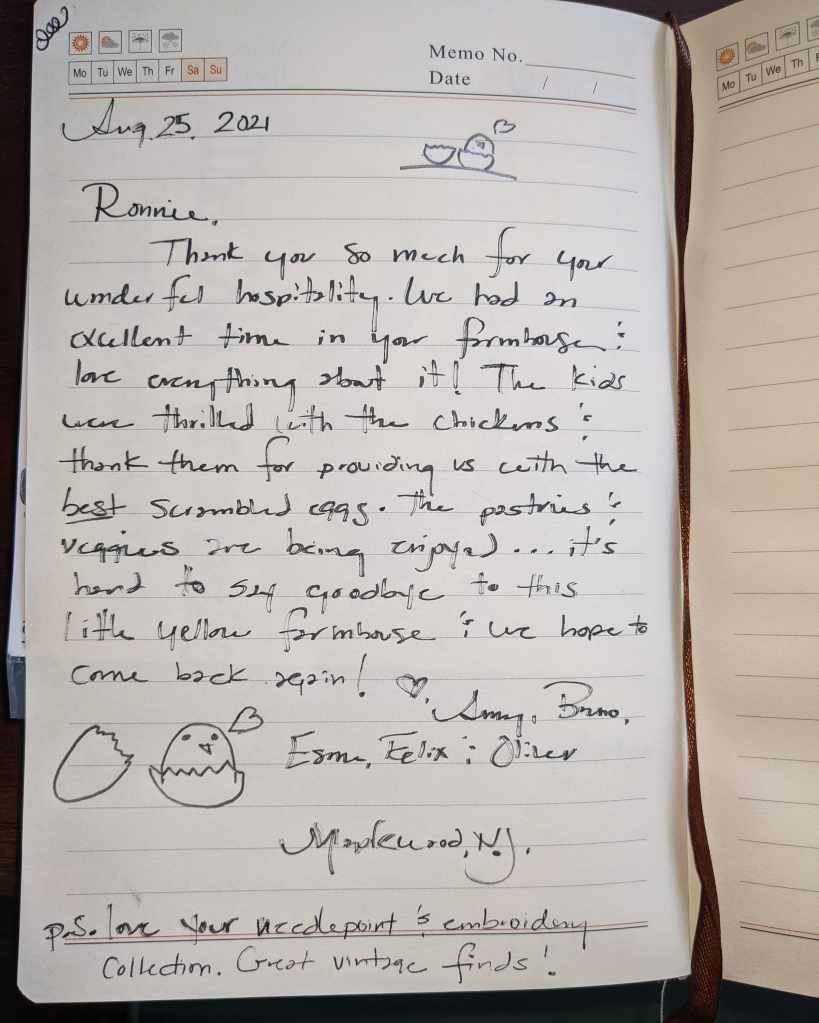 Mo Tu We Th Fr Sa Su
Memo No.
Date / /
Aug. 25, 2021
Ronnie,
Thank you so much for your
wonderful hospitality. We had an
excellent time in your farmhouse &
love everything about it! The kids
were thrilled with the chickens &
thank them for providing us with the
best scrambled eggs. The pastries &
veggies are being enjoyed... it's
hard to say goodbye to this
little yellow farmhouse & we hope to
come back again! ♡,
Amy, Bruno,
Esme, Felix & Oliver
Maplewood, NJ.
p.s. love your needlepoint & embroidery
collection. Great vintage finds!
Mo Tu We Th